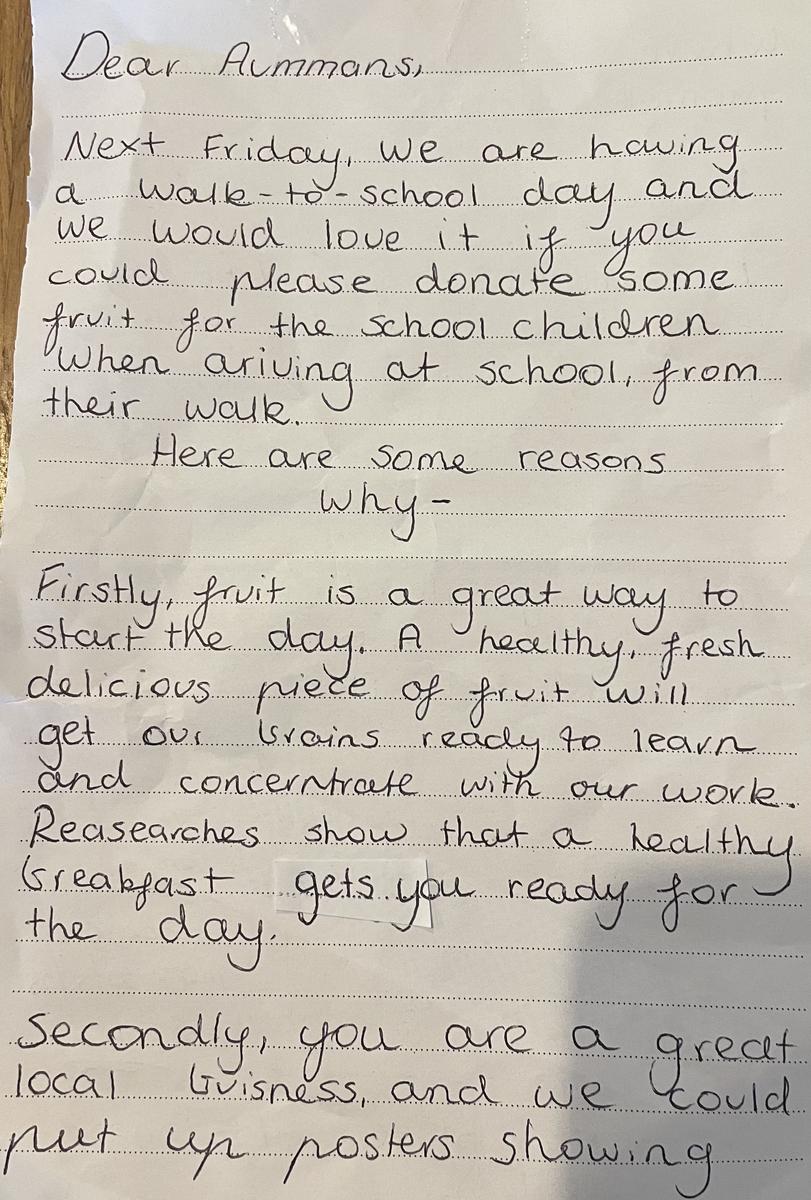 Dear Aummans,
Next Friday, we are having
a walk-to-school day and
we would love it if you
could please donate some
fruit for the school children
when ariving at school, from
their walk.
Here are some reasons
why-
Firstly, fruit is a great way to
start the day. A healthy, fresh
delicious piece of fruit will
get our brains ready to learn
and concerntrate with our work.
Reasearches show that a healthy
breakfast gets you ready for
the day.
Secondly, you are a great
local buisness, and we could
put up posters showing